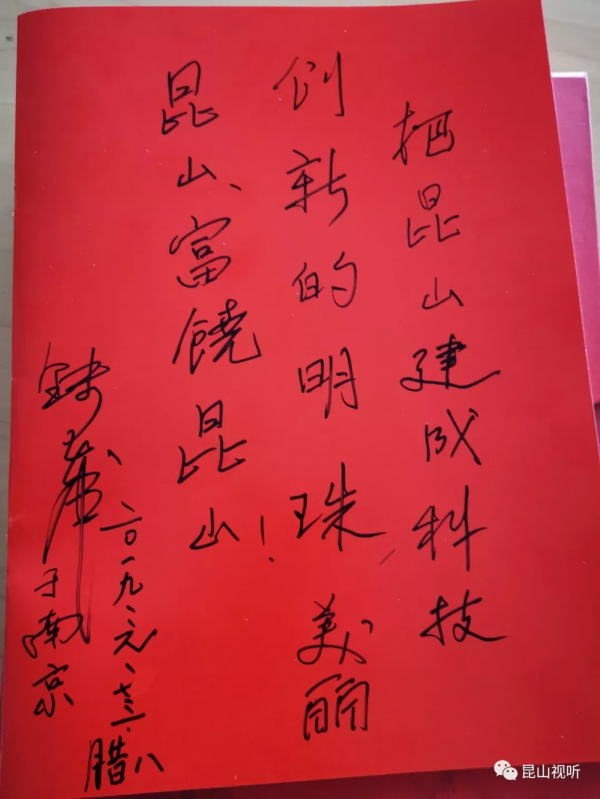 把昆山建成科技
创新的明珠，美丽
昆山、富饶昆山！
钱七虎于南京
二〇一九、元、十三、
腊八
昆山视听